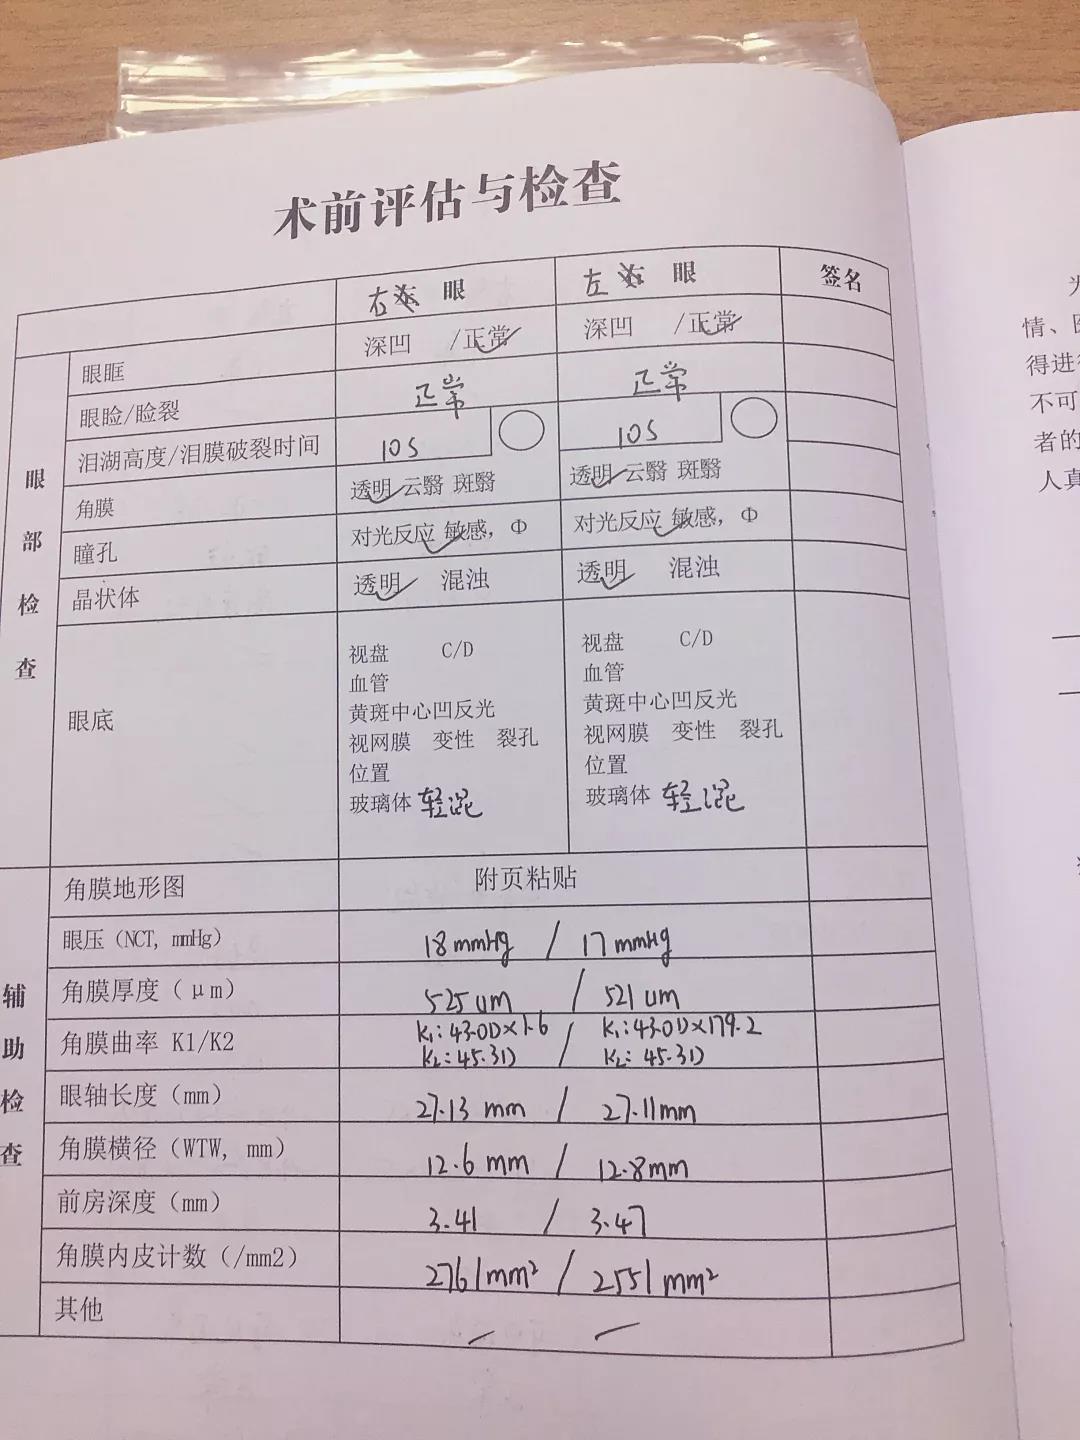 术前评估与检查
右 眼 左 眼 签名
眼部检查
眼眶 深凹 /正常 深凹 /正常
眼睑/睑裂 正常 正常
泪湖高度/泪膜破裂时间 10S 10S
角膜 透明 云翳 斑翳 透明 云翳 斑翳
瞳孔 对光反应 敏感，Φ 对光反应 敏感，Φ
晶状体 透明 混浊 透明 混浊
眼底
视盘 C/D 视盘 C/D
血管 血管
黄斑中心凹反光 黄斑中心凹反光
视网膜 变性 裂孔 视网膜 变性 裂孔
位置 位置
玻璃体 轻混 玻璃体 轻混
辅助检查
角膜地形图 附页粘贴
眼压（NCT, mmHg） 18mmHg / 17mmHg
角膜厚度（μm） 525um / 521um
角膜曲率 K1/K2 K1:43.0D×1.6 / K1:43.0D×179.2
K2:45.3D / K2:45.3D
眼轴长度（mm） 27.13 mm / 27.11mm
角膜横径（WTW, mm） 12.6 mm / 12.8mm
前房深度（mm） 3.41 / 3.47
角膜内皮计数（/mm2） 2761mm² / 2551mm²
其他 — —
情、
得进
不可
者的
人真